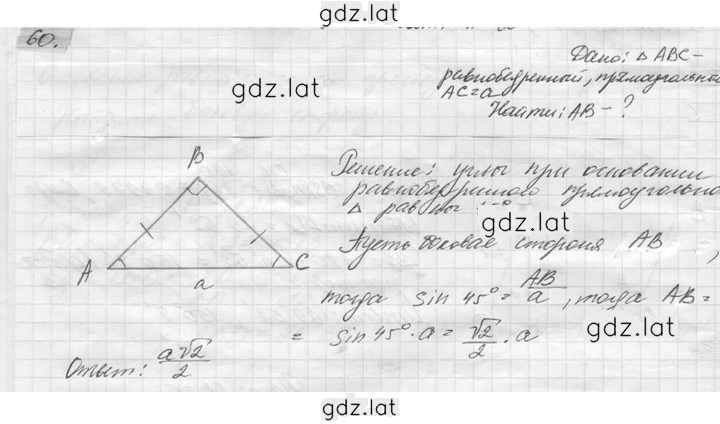 gdz.lat
60.
Дано: △ ABC -
равнобедренный, прямоугольный
AC = a
Найти: AB - ?
gdz.lat
B
A
C
a
Решение: углы при основании
равнобедренного прямоугольно
△ равны
gdz.lat
Пусть боковая сторона AB,
тогда sin 45° = AB/a, тогда AB =
= sin 45° · a = √2/2 · a
gdz.lat
Ответ: a√2/2
gdz.lat